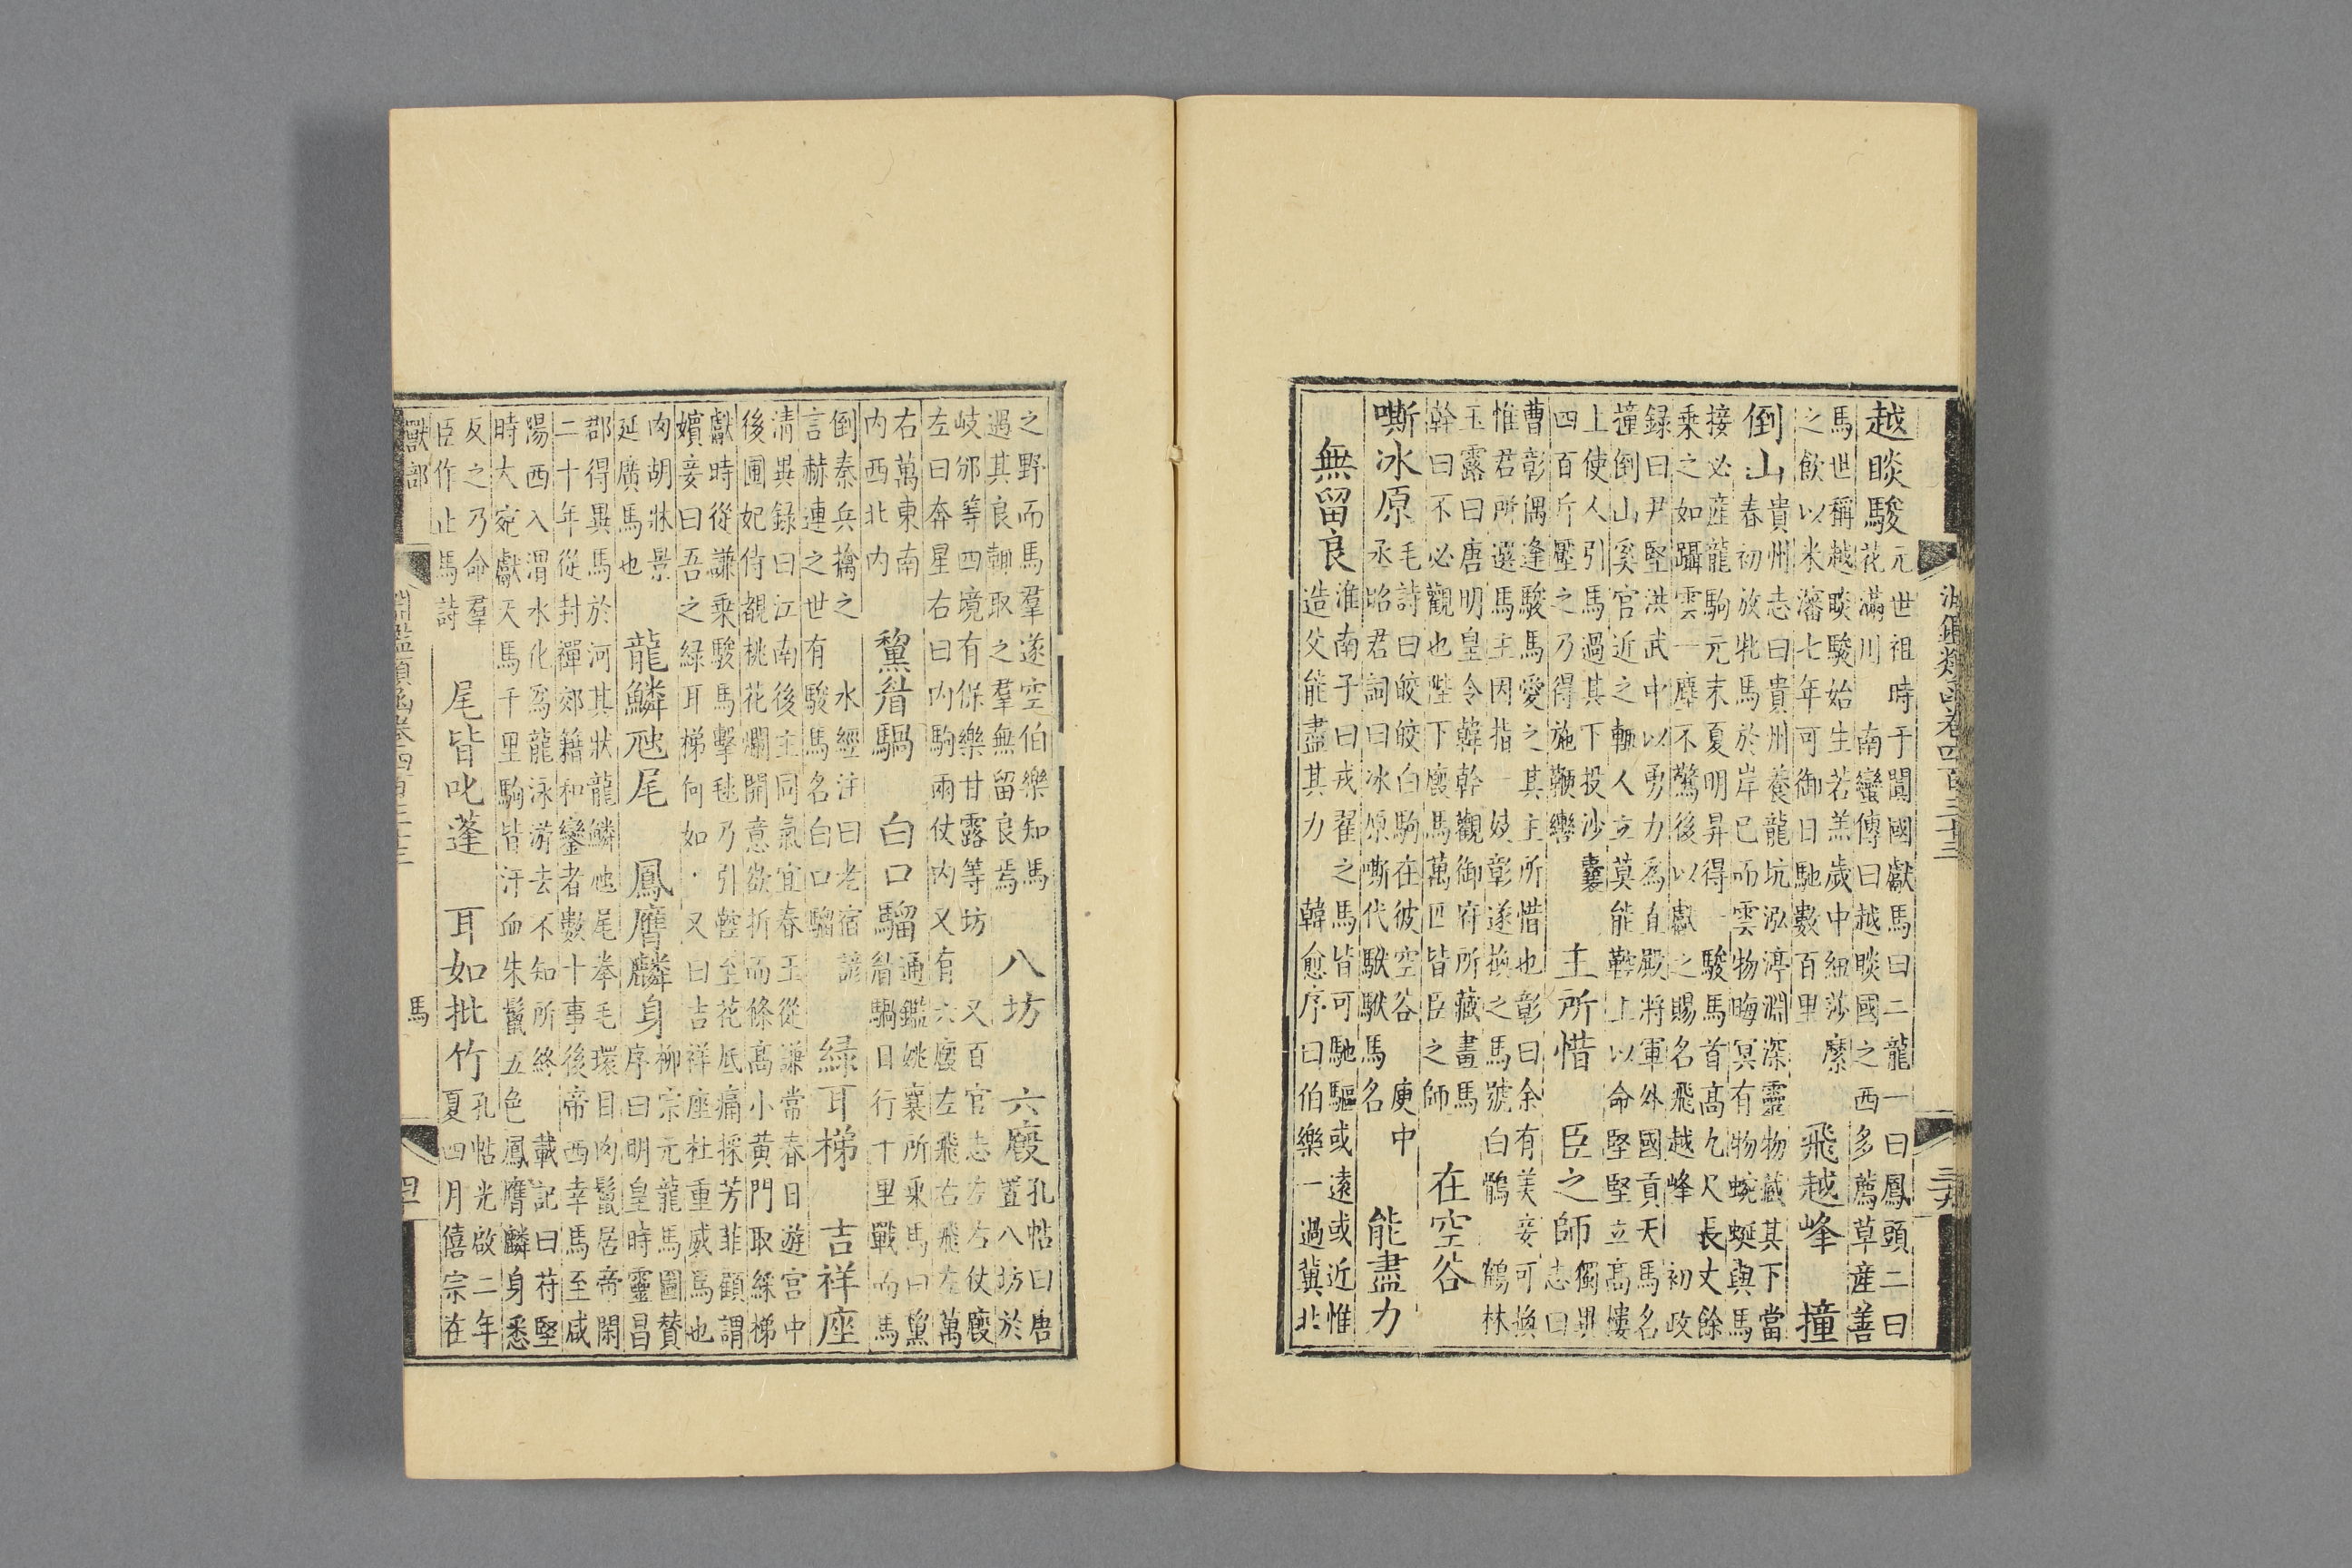 淵鑑類函卷四百三十三
越睒駿
元世祖時于闐國獻馬曰二龍一曰鳳頭二曰
花滿川 南蠻傳曰越睒國之西多薦草産善
馬世稱越睒駿始生若羔歲中紐莎縻
之飲以米瀋七年可御日馳數百里
飛越峰 撞
倒山
貴州志曰貴州養龍坑泓渟淵深靈物藏其下當
春初放牝馬於岸巳而雲物晦冥有物蜿蜒與馬
接必産龍駒元末夏明昇得一駿馬首高九尺長丈餘
乘之如躡雲一塵不驚後以獻之賜名飛越峰 初政
録曰尹堅洪武中以勇力為直殿將軍外國貢天馬名
撞倒山奚官近之輒人立莫能鞿上以命堅堅立高樓
上使人引馬過其下投沙囊
四百斤壓之乃得施鞭轡
主所惜 臣之師
獨異
志曰
曹彰偶逢駿馬愛之其主所惜也彰曰余有美妾可換
惟君所選馬主因指一妓彰遂換之馬號白鶻 鶴林
玉露曰唐明皇令韓幹觀御府所藏畫馬
幹曰不必觀也陛下廄馬萬匹皆臣之師
在空谷
嘶冰原
毛詩曰皎皎白駒在彼空谷 庾中
丞昭君詞曰冰原嘶代馱馱馬名
能盡力
無留良
淮南子曰戎翟之馬皆可馳驅或遠或近惟
造父能盡其力 韓愈序曰伯樂一過冀北
之野而馬羣遂空伯樂知馬
過其良輒取之羣無留良焉
八坊 六廄
孔帖曰唐
置八坊於
岐邠等四境有保樂甘露等坊 又百官志左右仗廄
左曰奔星右曰内駒兩仗内又有六廄左飛右飛左萬
右萬東南
内西北内
黧眉騧 白口騮
通鑑姚襄所乘馬曰黧
眉騧日行千里戰而馬
倒秦兵擒之 水經注曰老宿諺
言赫連之世有駿馬名白口騮
緑耳梯 吉祥座
清異録曰江南後主同氣宜春王從謙常春日遊宮中
後圃妃侍覩桃花爛開意欲折而條高小黄門取綵梯
獻時從謙乘駿馬擊毬乃引鞚至花底痛採芳菲顧謂
嬪妾曰吾之緑耳梯何如 又曰吉祥座杜重威馬也
肉胡牀景
延廣馬也
龍鱗虺尾 鳳膺麟身
柳宗元龍馬圖贊
序曰明皇時靈昌
郡得異馬於河其狀龍鱗虺尾拳毛環目肉鬣居帝閑
二十年從封禪郊籍和鑾者數十事後帝西幸馬至咸
陽西入渭水化為龍泳游去不知所終 載記曰苻堅
時大宛獻天馬千里駒皆汗血朱鬣五色鳳膺麟身悉
反之乃命羣
臣作止馬詩
尾皆叱蓬 耳如批竹
孔帖光啟二年
夏四月僖宗在
獸部 馬
淵鑑類函卷四百三十三